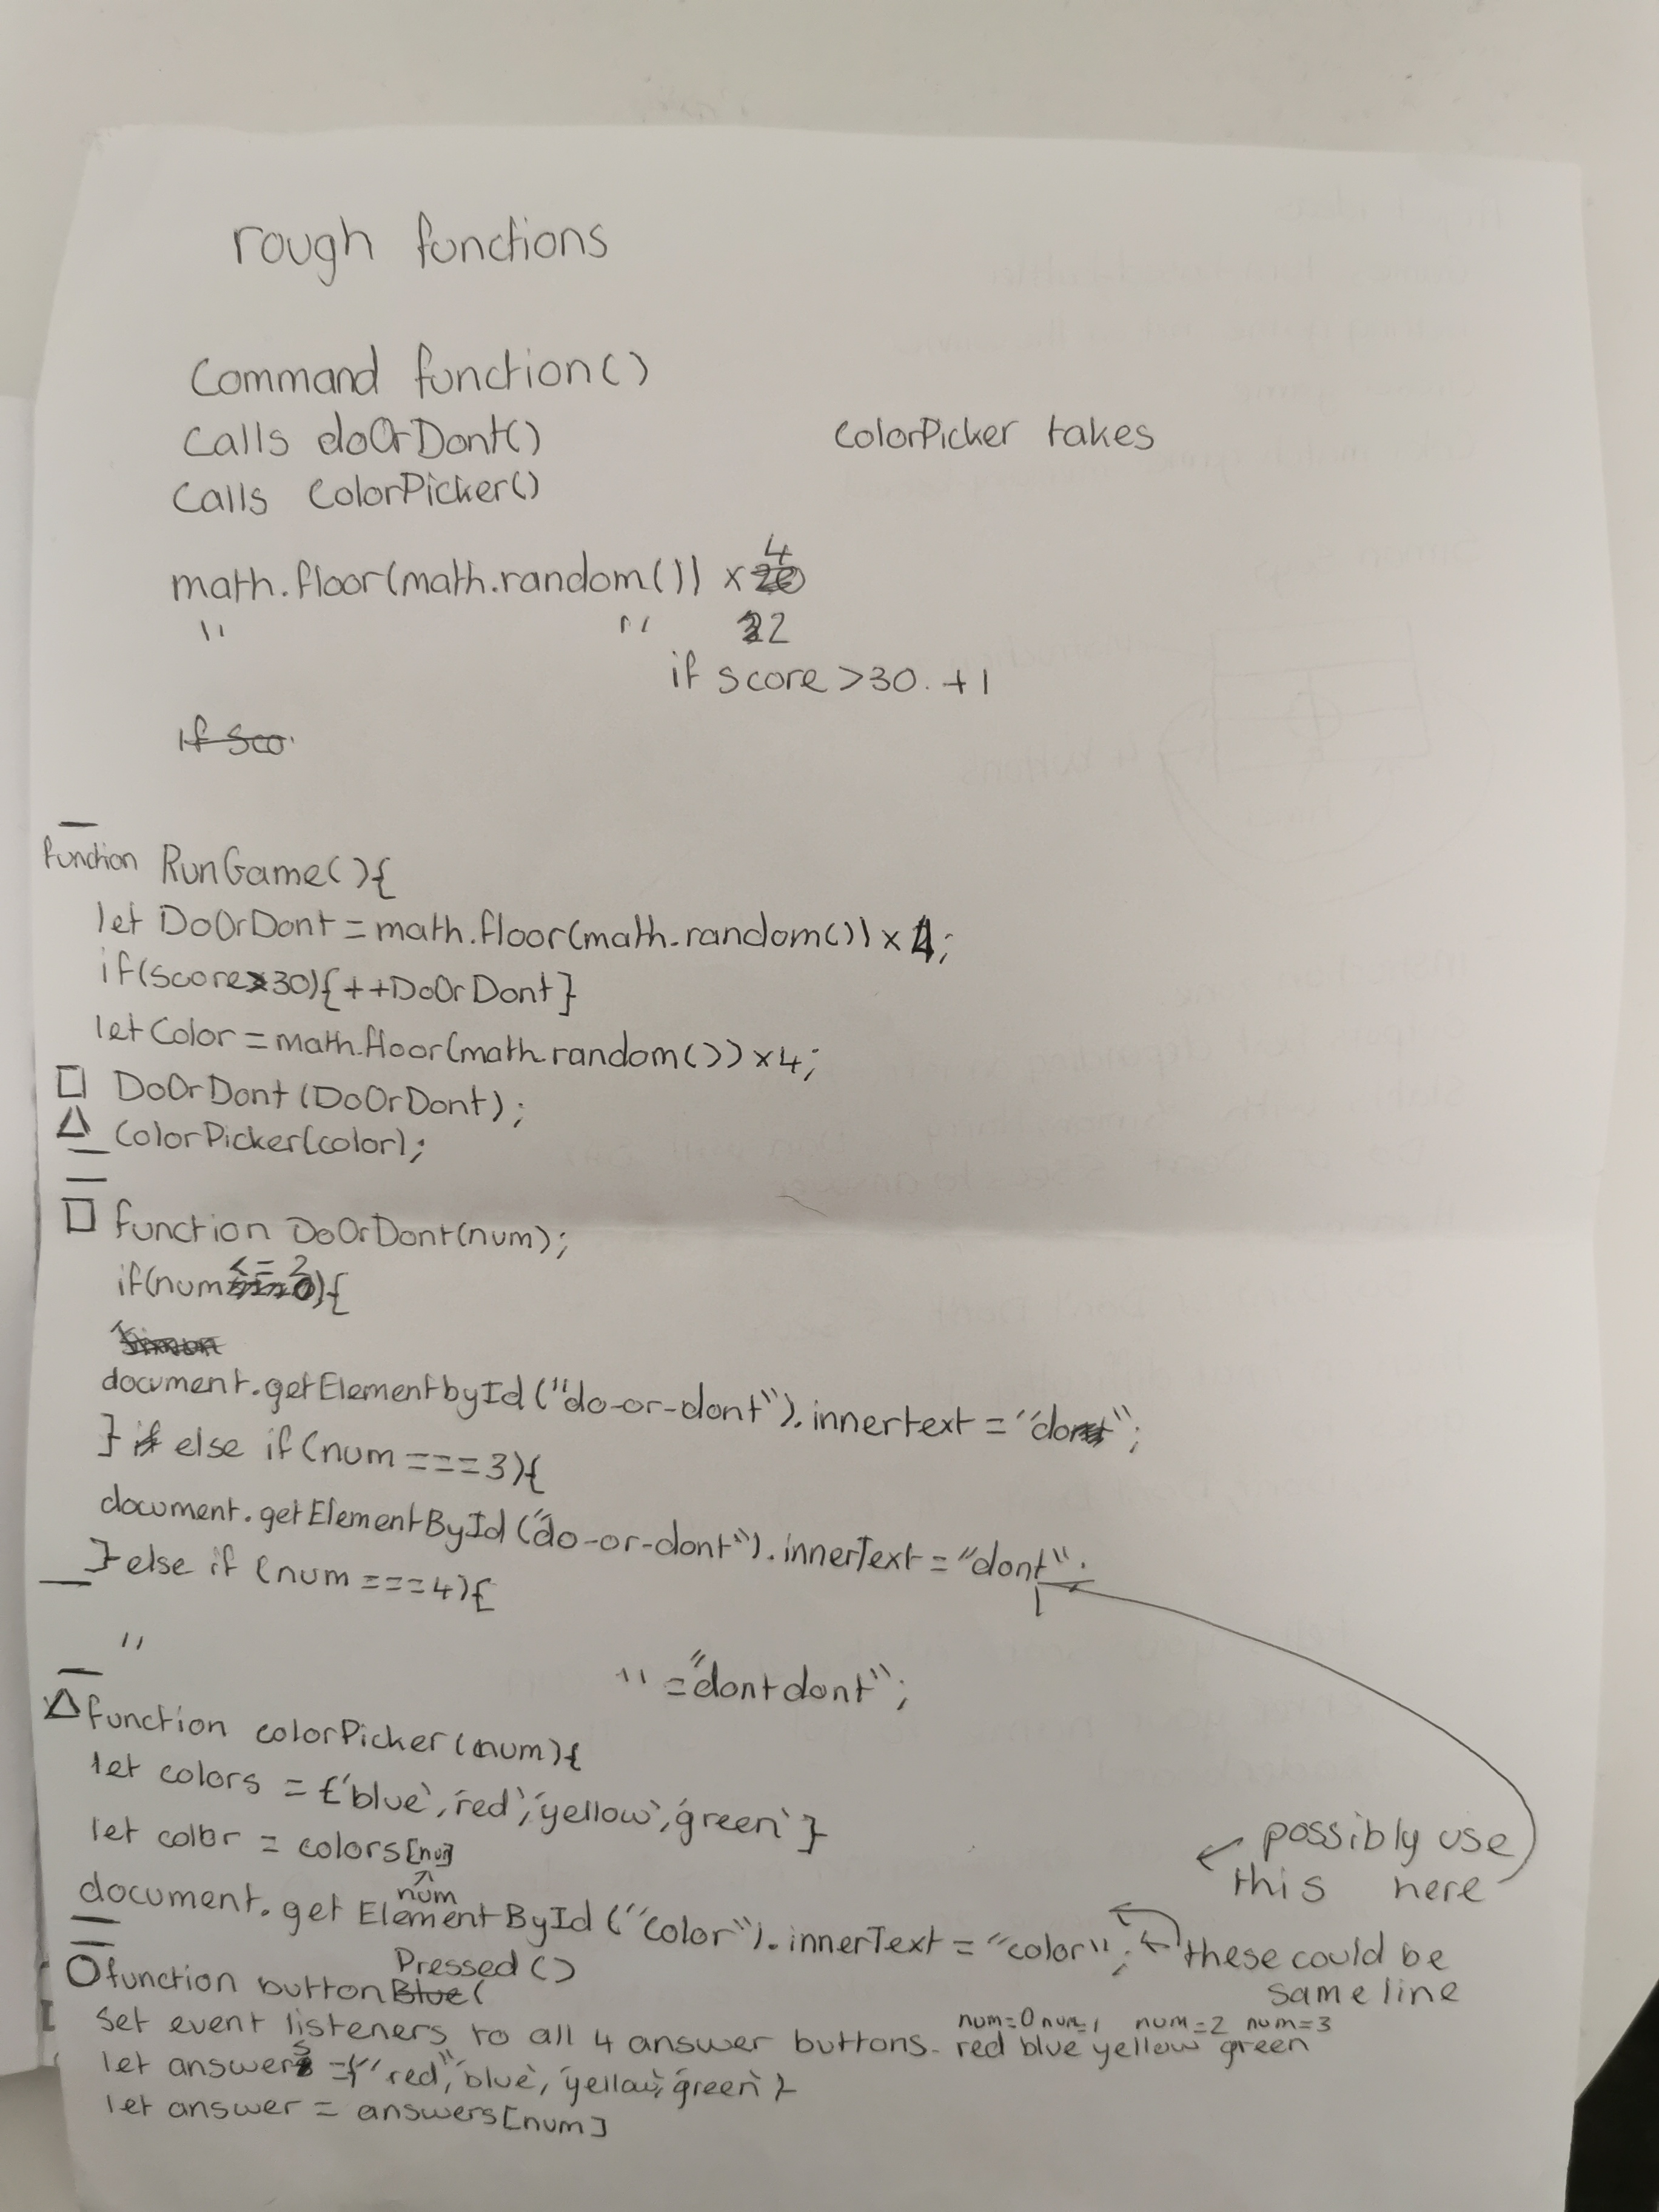 rough functions
Command function()
Calls doOrDont()
ColorPicker takes
Calls ColorPicker()
4
math.floor(math.random()) x
" " 22
if score >30. +1
If Sco
function RunGame(){
let DoOrDont = math.floor(math.random()) x 4;
if(score>30){++DoOrDont}
let Color = math.floor(math.random()) x 4;
□ DoOrDont (DoOrDont);
△ ColorPicker(color);
□ function DoOrDont(num);
if(num <= 2){
document.getElementbyId ("do-or-dont").innertext = "do";
} else if (num === 3){
document.getElementById ("do-or-dont").innerText = "dont";
} else if (num === 4){
" " = "dont dont";
△ function colorPicker (num){
let colors = {'blue', 'red', 'yellow', 'green'}
let color = colors[num]
num
possibly use
this here
document.getElementById ("color").innerText = "color"; these could be
same line
Pressed ()
O function button Blue(
Set event listeners to all 4 answer buttons. red blue yellow green
num=0 num=1 num=2 num=3
let answers = {"red", 'blue', 'yellow', 'green'}
let answer = answers[num]